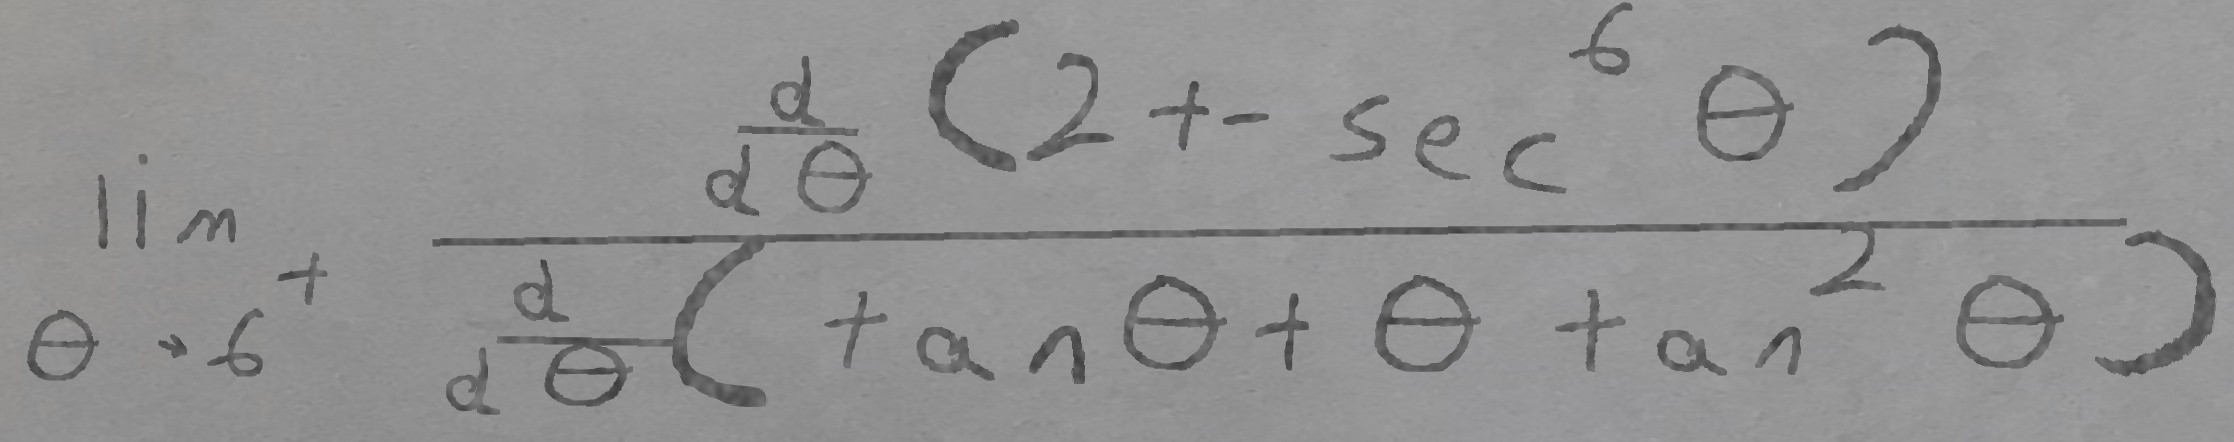 \lim_{\theta \to 6^+} \frac{\frac{d}{d\theta}(2+-\sec^6\theta)}{\frac{d}{d\theta}(\tan\theta+\theta\tan^2\theta)}